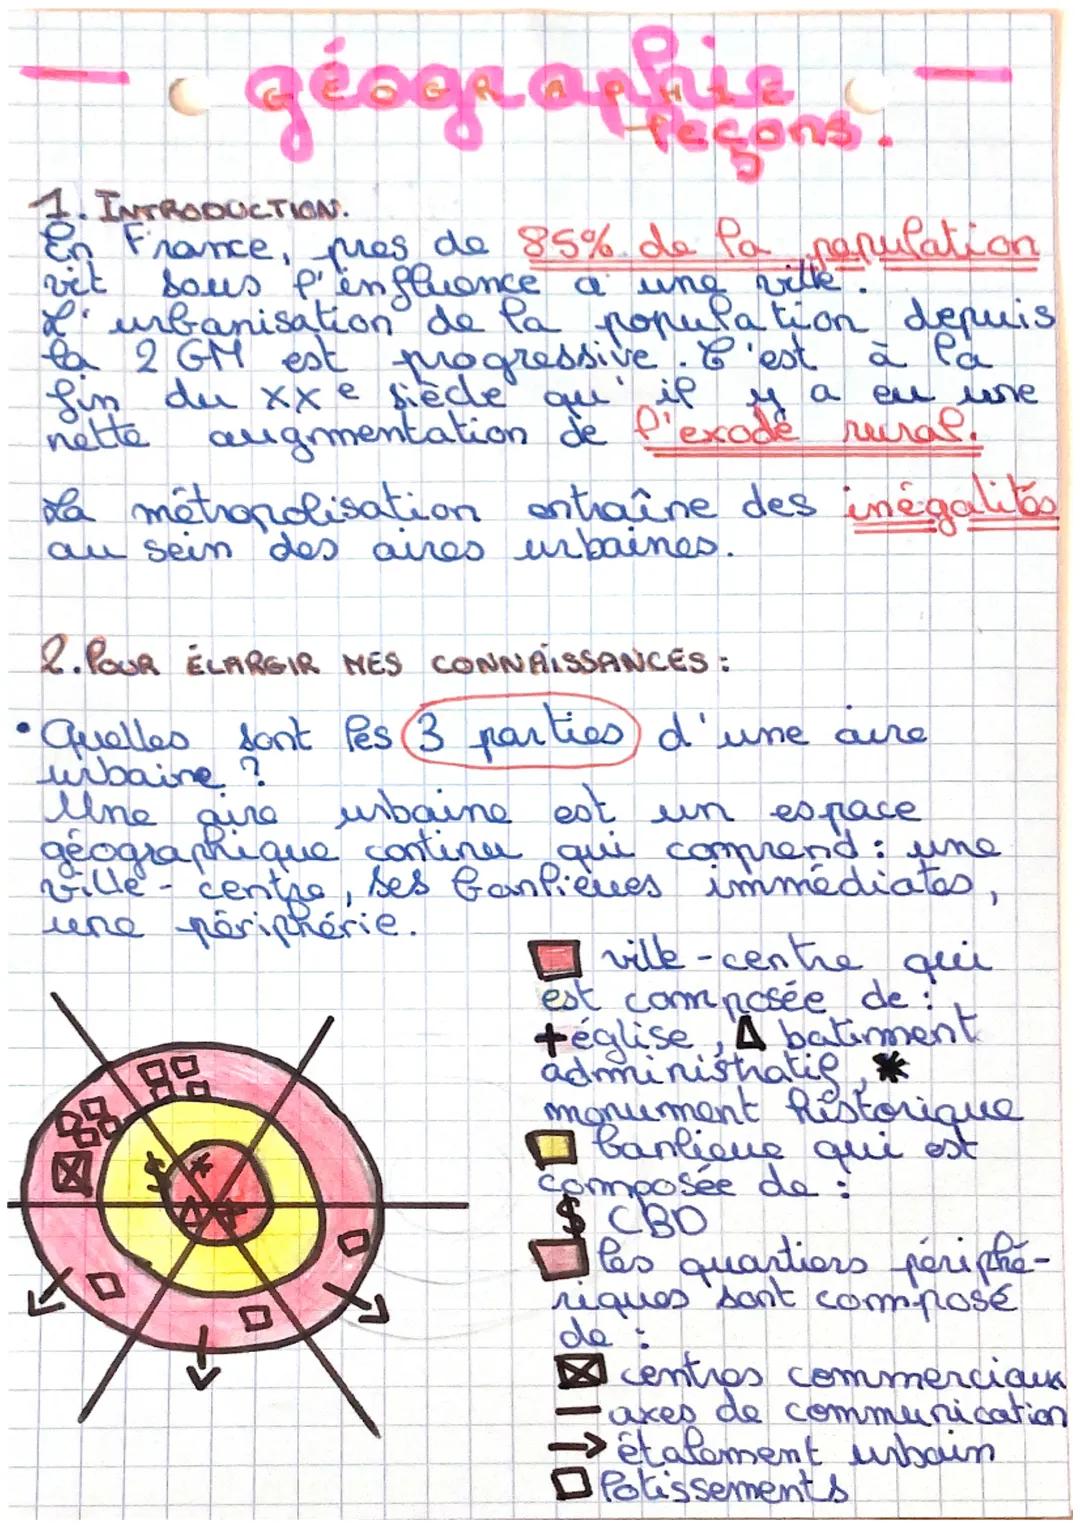 géographie
GÉOGRAPHIE
leçons.
1. INTRODUCTION.
En France, près de 85% de la population
vit sous l'influence d'une ville.
L'urbanisation de la population depuis
la 2 GM est progressive. C'est à la
fin du XXe siècle qu'il y a eu une
nette augmentation de l'exode rural.
La métropolisation entraîne des inégalités
au sein des aires urbaines.
2. POUR ÉLARGIR MES CONNAISSANCES :
• Quelles sont les 3 parties d'une aire
urbaine ?
Une aire urbaine est un espace
géographique continu qui comprend : une
ville-centre, ses banlieues immédiates,
une périphérie.
ville-centre qui
est composée de :
+ église, Δ batiment
administratif, *
monument historique
banlieue qui est
composée de :
$ CBD
les quartiers périphé-
riques sont composé
de :
centres commerciaux
— axes de communication
→ étalement urbain
lotissements
$
*
Δ +